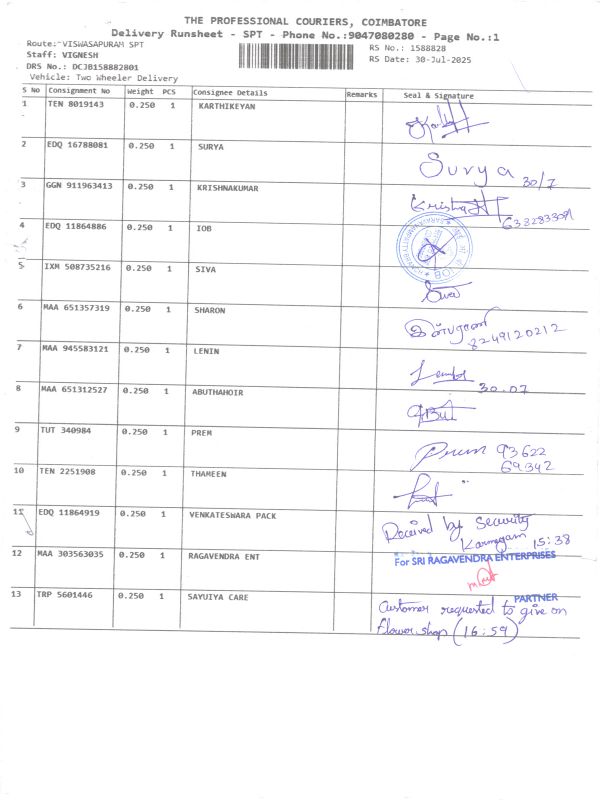 THE PROFESSIONAL COURIERS, COIMBATORE
Delivery Runsheet - SPT - Phone No.:9047080280 - Page No.:1
Route: VISWASAPURAM SPT
RS No.: 1588828
Staff: VIGNESH
RS Date: 30-Jul-2025
DRS No.: DCJB158882801
Vehicle: Two Wheeler Delivery
S No Consignment No Weight PCS Consignee Details Remarks Seal & Signature
1 TEN 8019143 0.250 1 KARTHIKEYAN
2 EDQ 16788081 0.250 1 SURYA Surya 30/7
3 GGN 911963413 0.250 1 KRISHNAKUMAR
6332833091
4 EDQ 11864886 0.250 1 IOB
5 IXM 508735216 0.250 1 SIVA Siva
6 MAA 651357319 0.250 1 SHARON
8249120212
7 MAA 945583121 0.250 1 LENIN 30.07
8 MAA 651312527 0.250 1 ABUTHAHOIR
9 TUT 340984 0.250 1 PREM Prem 93622
69342
10 TEN 2251908 0.250 1 THAMEEN
11 EDQ 11864919 0.250 1 VENKATESWARA PACK Received by Security
Karmegam 15:38
12 MAA 303563035 0.250 1 RAGAVENDRA ENT For SRI RAGAVENDRA ENTERPRISES
PARTNER
13 TRP 5601446 0.250 1 SAYUIYA CARE Customer requested to give on
flower shop (16:59)